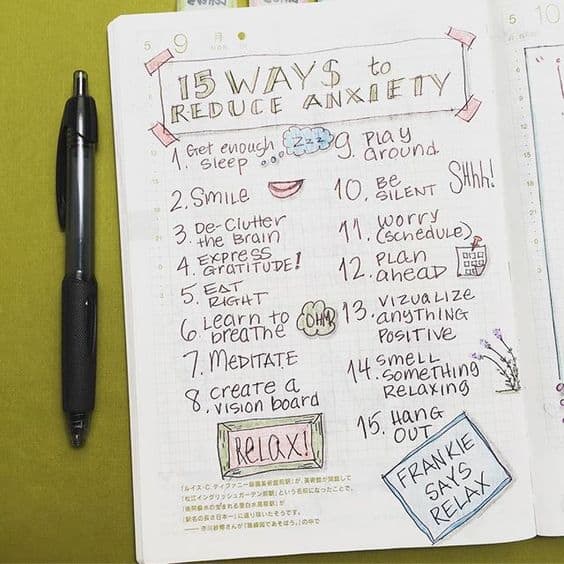 5 9 月
15 WAYS to
REDUCE ANXIETY
1. Get enough
sleep
zzz
2. Smile
3. De-Clutter
the Brain
4. Express
Gratitude!
5. EAT
RIGHT
6. Learn to
breathe
OHM
7. MEDITATE
8. Create a
vision board
RELAX!
9. PLAY
around.
10. BE
SILENT
Shhh!
11. Worry
(schedule)
12. PLAN
AHEAD
13. VIZUALIZE
ANYTHING
POSITIVE
14. SMELL
SOMETHING
RELAXING
15. HANG
OUT
FRANKIE
SAYS
RELAX
5 10